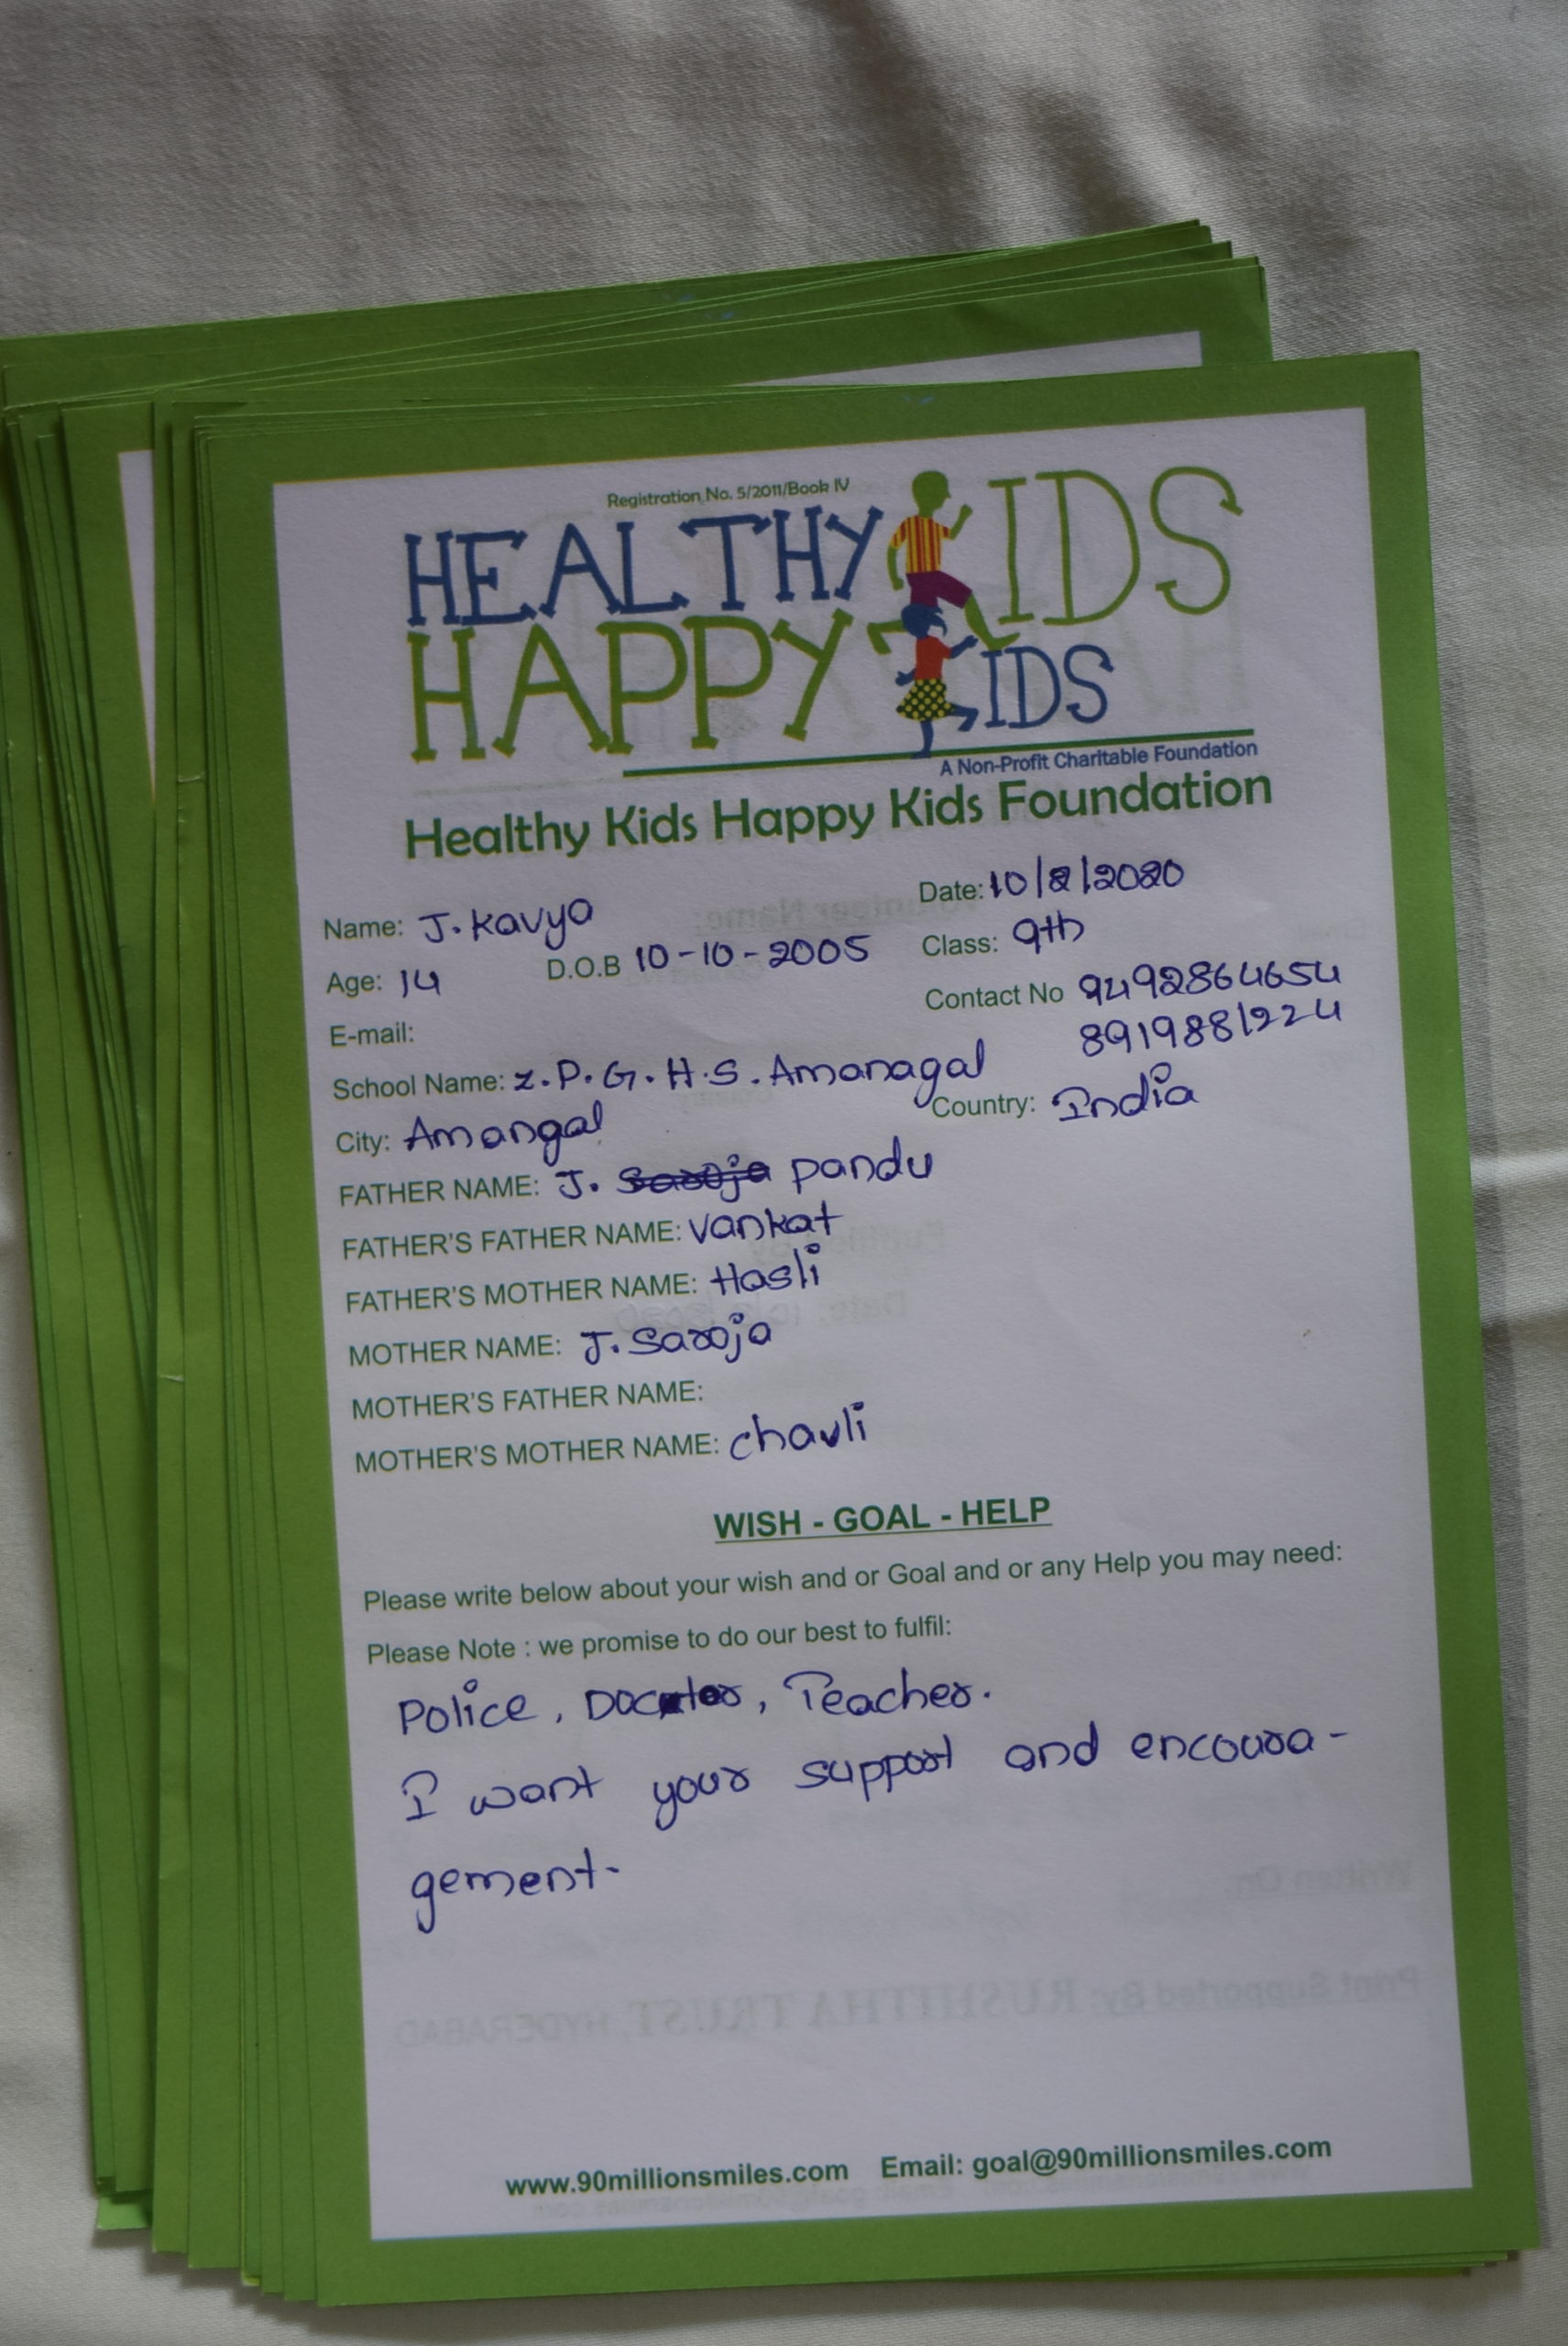 Registration No. 5/2011/Book IV
HEALTHY KIDS
HAPPY KIDS
A Non-Profit Charitable Foundation
Healthy Kids Happy Kids Foundation
Date: 10/2/2020
Name: J. Kavya
Age: 14 D.O.B 10-10-2005 Class: 9th
Contact No 9492864654
8919881224
E-mail:
School Name: Z.P.G.H.S. Amanagal
City: Amangal Country: India
FATHER NAME: J. Saroja pandu
FATHER'S FATHER NAME: Vankat
FATHER'S MOTHER NAME: Hasli
MOTHER NAME: J. Saroja
MOTHER'S FATHER NAME:
MOTHER'S MOTHER NAME: chavli
WISH - GOAL - HELP
Please write below about your wish and or Goal and or any Help you may need:
Please Note : we promise to do our best to fulfil:
Police, Doctor, Teacher.
I want your support and encoura-
gement.
www.90millionsmiles.com Email: goal@90millionsmiles.com